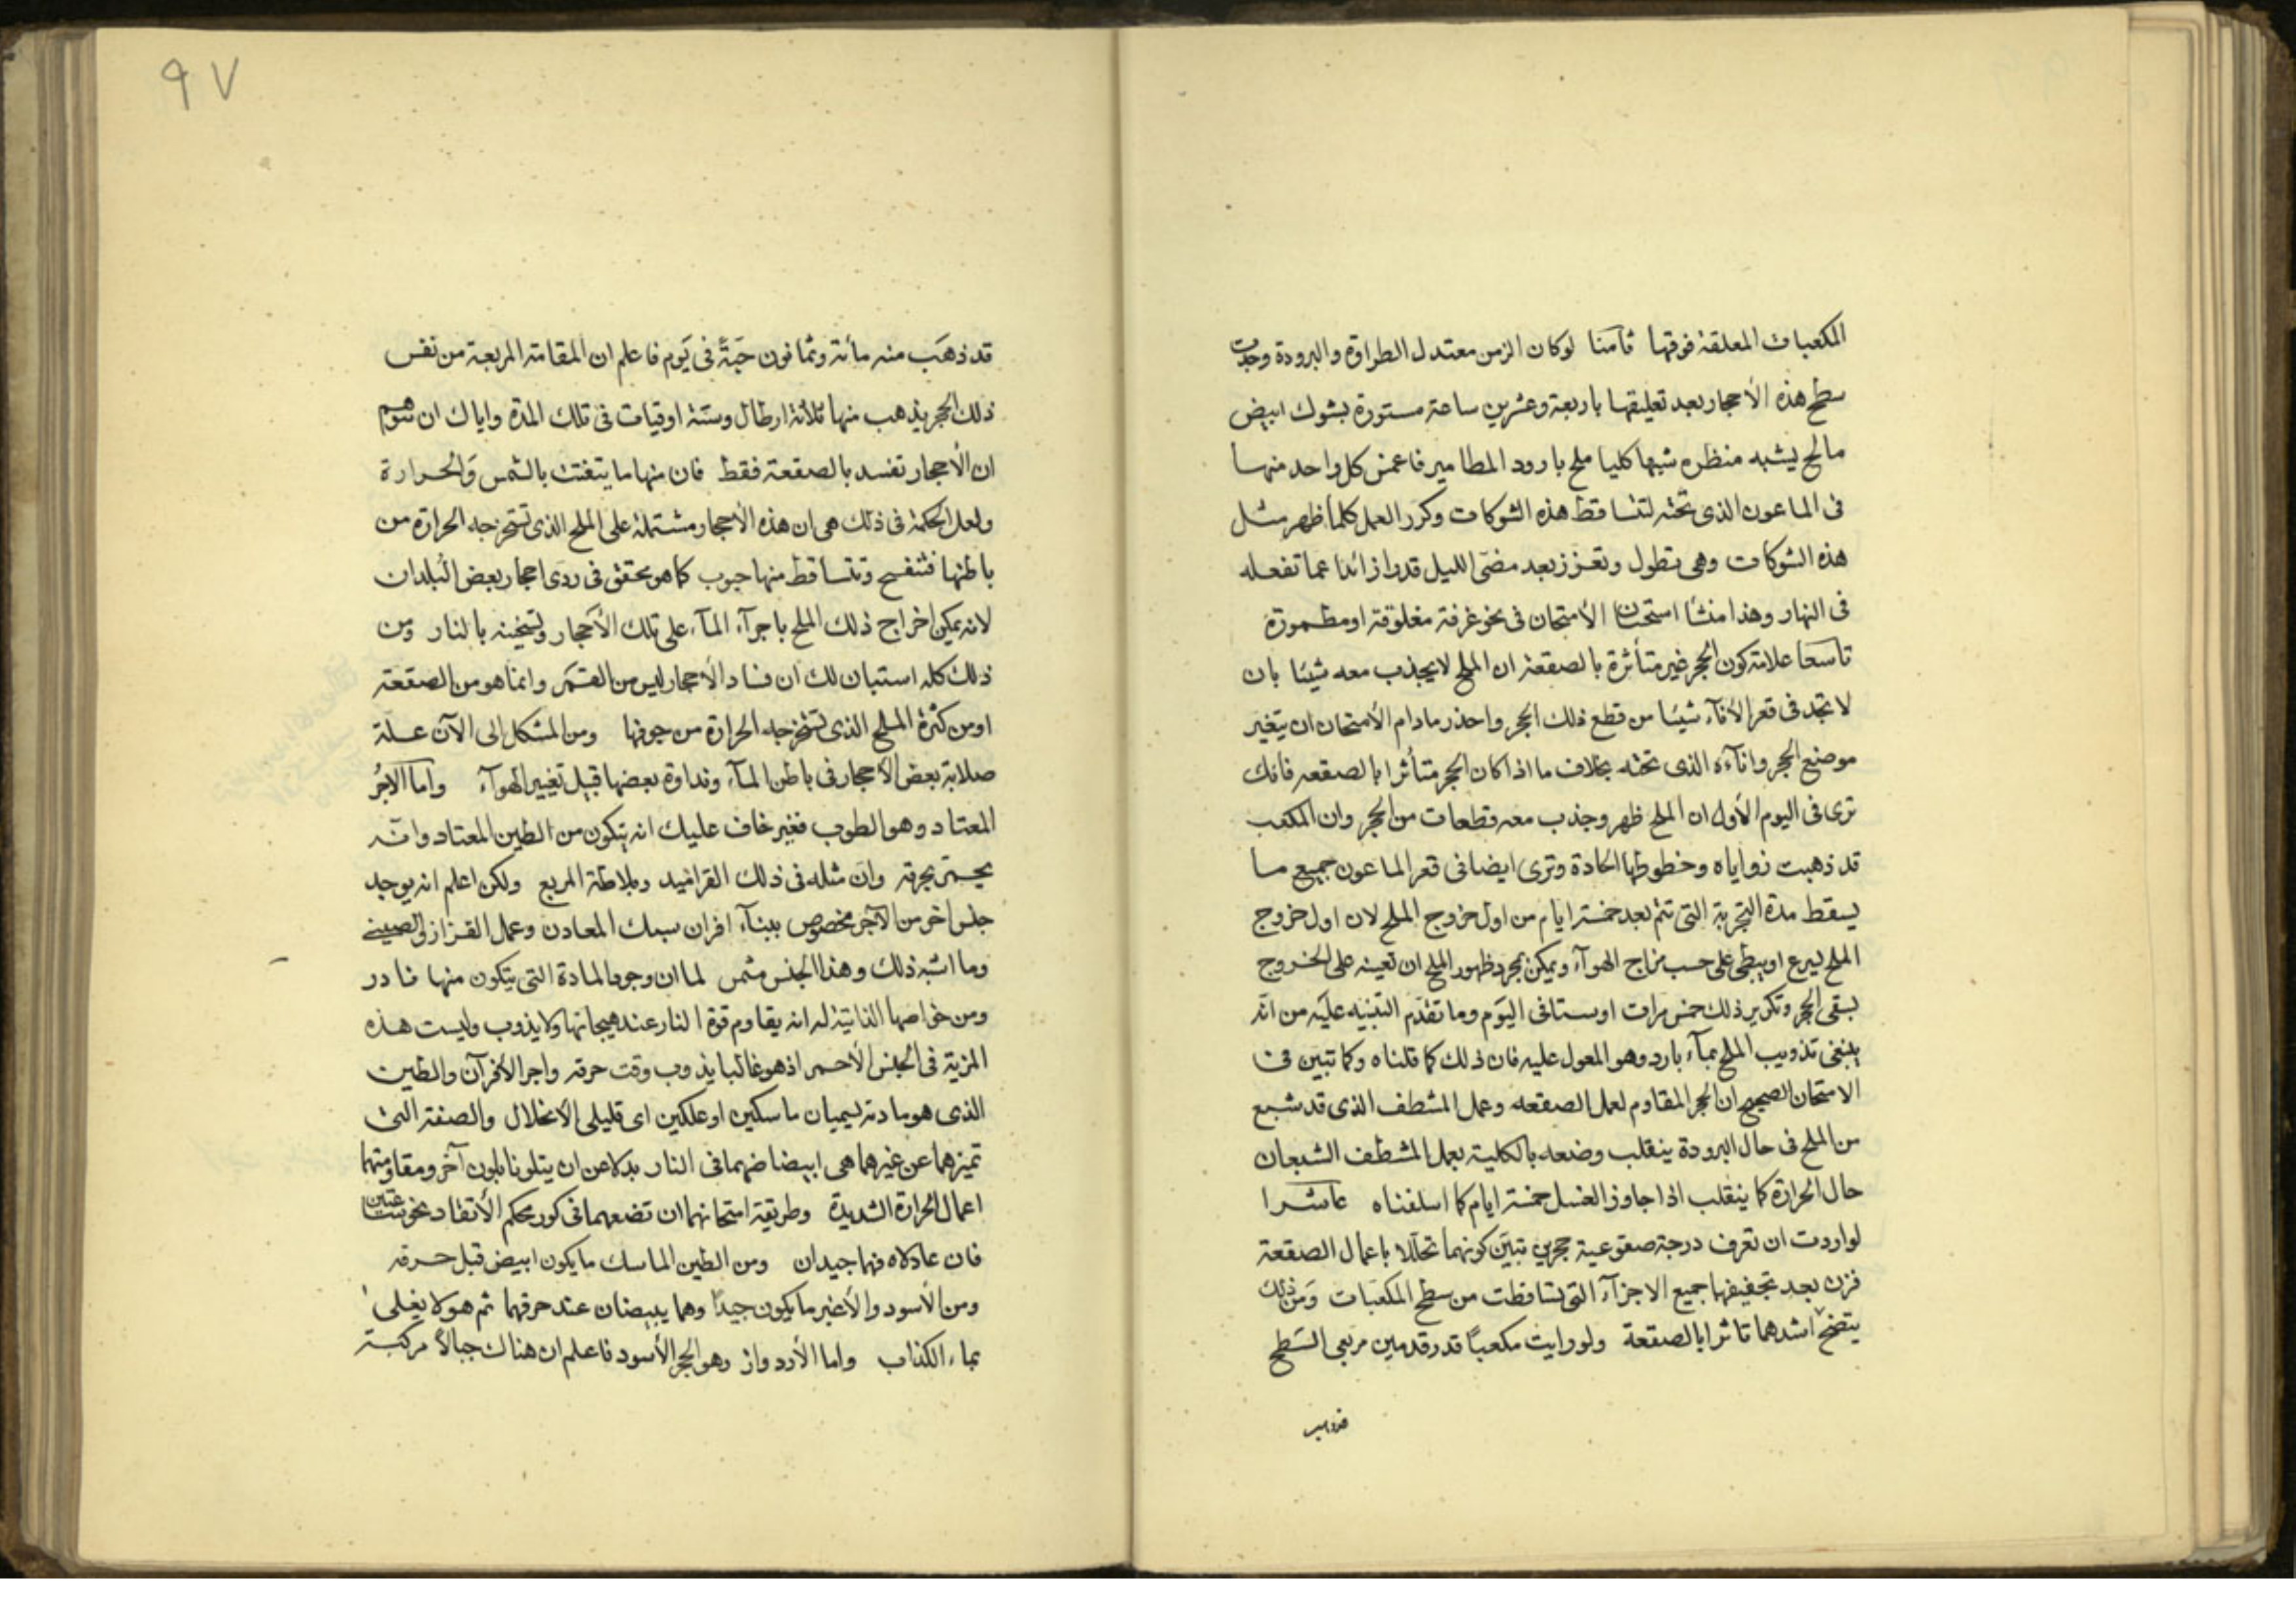 المكعبات المعلقة فوقها ثامنا لوكان الزمن معتدل الطراوة والبرودة وجدت
سطح هذه الأحجار بعد تعليقها باربعة وعشرين ساعة مستورة بشوك ابيض
مالح يشبه منظره شبها كليا ملح بارود المطامير فاغمس كل واحد منها
فى الماعون الذى تحته لتتساقط هذه الشوكات وكرر العمل كلما ظهر مثل
هذه الشوكات وهى تطول وتغزر بعد مضى الليل قدرا زائدا عما تفعله
فى النهار وهذا منشأ استحسان الأمتحان فى نحو غرفة مغلوقة او مطمورة
تاسعا علامة كون الحجر غير متأثرة بالصقعة ان الملح لا يجذب معه شيئا بان
لا تجد فى قعر الأناء شيئا من قطع ذلك الحجر واحذر مادام الأمتحان ان يتغير
موضع الحجر واناءه الذى تحته بخلاف ما اذا كان الحجر متأثرا بالصقعه فانك
ترى فى اليوم الأول ان الملح ظهر وجذب معه قطعات من الحجر وان المكعب
قد ذهبت زواياه وخطوطها الحادة وترى ايضا فى قعر الماعون جميع ما
يسقط مدة التجربة التى تتم بعد خمسة ايام من اول خروج الملح لان اول خروج
الملح يسرع او يبطى على حسب مزاج الهوآء ويمكن بمجرد ظهور الملح ان تعينه على الخروج
بسقى الحجر وتكرير ذلك خمس مرات او ستا فى اليوم وما تقدم التنبيه عليه من انه
ينبغى تذويب الملح بمآء بارد وهو المعول عليه فان ذلك كما قلناه وكما تبين فى
الامتحان الصحيح ان الحجر المقاوم لعمل الصقعه وعمل المشطف الذى قد شبع
من الملح فى حال البرودة ينقلب وضعه بالكلية بعمل المشطف الشبعان
حال الحرارة كما ينقلب اذا جاوز الغسل خمسة ايام كما اسلفناه عاشرا
لو اردت ان تعرف درجة صقوعية حجرين تبين كونهما تحللا باعمال الصقعة
فزن بعد تجفيفها جميع الاجزآء التى تساقطت من سطح المكعبات ومن ذلك
يتضح اشدهما تاثرا بالصقعة ولو رايت مكعبا قدر قدمين مربعى السطح
٩٧
قد ذهب منه مائة وثمانون حبة فى يوم فاعلم ان المقامة المربعة من نفس
ذلك الحجر يذهب منها ثلاثة ارطال وستة اوقيات فى تلك المدة واياك ان تتوهم
ان الأحجار تفسد بالصقعة فقط فان منها ما يتفتت بالشمس والحرارة
ولعل الحكمة فى ذلك هى ان هذه الأحجار مشتملة على الملح الذى تستخرجه الحرارة من
باطنها فتنفسح وتتساقط منها حبوب كما هو محقق فى ردى احجار بعض البلدان
لانه يمكن اخراج ذلك الملح باجرآء المآء على تلك الأحجار وتسخينه بالنار ومن
ذلك كله استبان لك ان فساد الأحجار ليس من القمر وانما هو من الصقعة
او من كثرة الملح الذى تستخرجه الحرارة من جوفها ومن المشكل الى الآن علة
صلابة بعض الأحجار فى باطن المآء ونداوة بعضها قبيل تغيير الهوآء واما الآجر
المعتاد وهو الطوب فغير خاف عليك انه يتكون من الطين المعتاد وانه
يحمر بحرقه وان مثله فى ذلك القراميد وبلاطة المربع ولكن اعلم انه يوجد
جنس اخر من الآجر مخصوص ببنآء افران سبك المعادن وعمل القزاز والصينى
وما اشبه ذلك وهذا الجنس مثمن لما ان وجود المادة التى يتكون منها نادر
ومن خواصها الذاتية له انه يقاوم قوة النار عند هيجانها ولا يذوب وليست هذه
المزية فى الجنس الأحمر اذ هو غالبا يذوب وقت حرقه واجر الأفران والطين
الذى هو مادته يسميان ماسكين او علكين اى قليلى الأنحلال والصفة التى
تميزهما عن غيرهما هى ابيضاضهما فى النار بدلا عن ان يتلونا بلون آخر ومقاومتهما
اعمال الحرارة الشديدة وطريقة امتحانهما ان تضعهما فى كور محكم الأتقاد نحو ساعتين
فان عادلاه فهما جيدان ومن الطين الماسك ما يكون ابيض قبل حرقه
ومن الأسود والأغبر ما يكون جيدا وهما يبيضان عند حرقهما ثم هو لا يغلى
بماء الكذاب واما الأردواز وهو الحجر الأسود فاعلم ان هناك جبالا مركبة